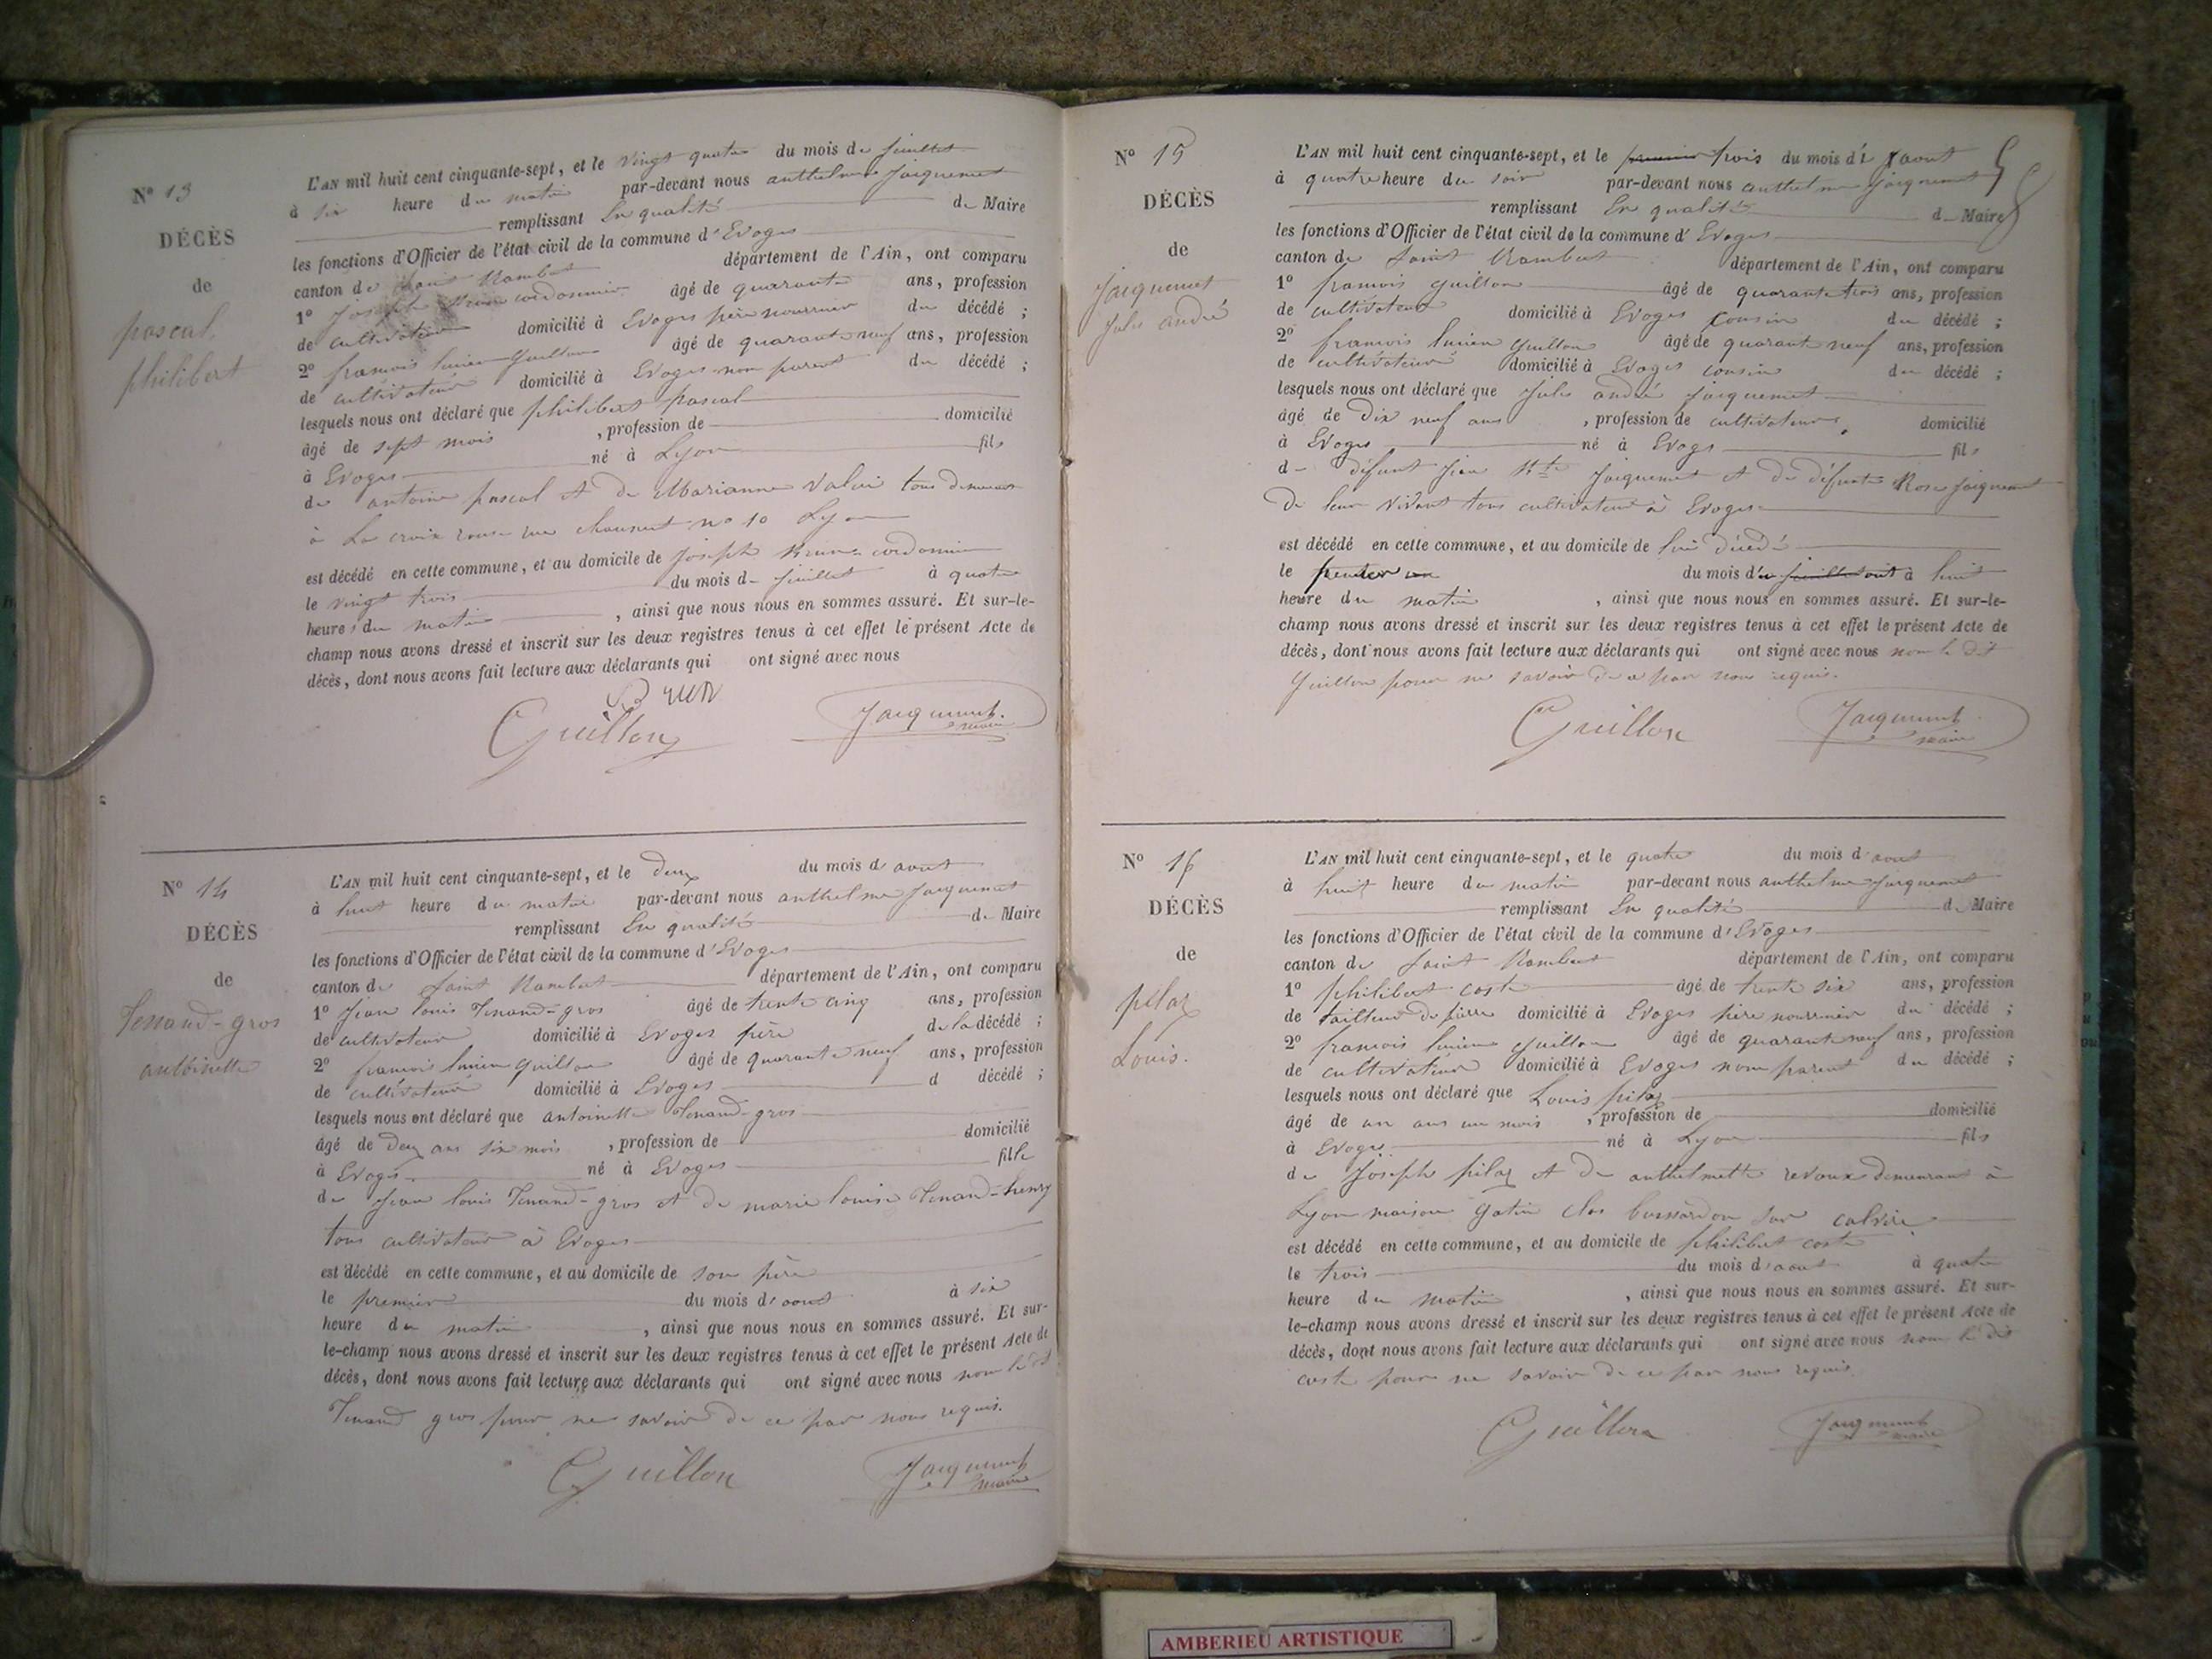 N° 13
DÉCÈS
de
pascal
philibert
L'AN mil huit cent cinquante-sept, et le vingt quatre du mois de juillet
à six heure du matin par-devant nous anthelme Jacquemet
remplissant En qualité de Maire
les fonctions d'Officier de l'état civil de la commune d'Evoges
canton de Saint Rambert département de l'Ain, ont comparu
1° Joseph Brun cordonnier âgé de quarante ans, profession
de cultivateur domicilié à Evoges père nourricier du décédé ;
2° francois lucien Guillon âgé de quarante neuf ans, profession
de cultivateur domicilié à Evoges non parent du décédé ;
lesquels nous ont déclaré que philibert pascal
âgé de sept mois , profession de domicilié
à Evoges né à Lyon fils
de antoine pascal et de Marianne tous demeurant
à La croix rousse rue no 10 Lyon
est décédé en cette commune, et au domicile de Joseph Brun cordonnier
le vingt trois du mois de juillet à quatre
heure du matin , ainsi que nous nous en sommes assuré. Et sur-le-
champ nous avons dressé et inscrit sur les deux registres tenus à cet effet le présent Acte de
décès, dont nous avons fait lecture aux déclarants qui ont signé avec nous
Brun
Guillon Jacquemet maire
N° 14
DÉCÈS
de
Tenand-gros
antoinette
L'AN mil huit cent cinquante-sept, et le deux du mois d'aout
à huit heure du matin par-devant nous anthelme Jacquemet
remplissant En qualité de Maire
les fonctions d'Officier de l'état civil de la commune d'Evoges
canton de Saint Rambert département de l'Ain, ont comparu
1° Jean louis Tenand-gros âgé de trente cinq ans, profession
de cultivateur domicilié à Evoges père de la décédé ;
2° francois lucien Guillon âgé de quarante neuf ans, profession
de cultivateur domicilié à Evoges d décédé ;
lesquels nous ont déclaré que antoinette Tenand-gros
âgé de deux ans six mois , profession de domicilié
à Evoges né à Evoges fille
de Jean louis Tenand-gros et de marie louise Tenand-henry
tous cultivateur à Evoges
est décédé en cette commune, et au domicile de son père
le premier du mois d'aout à six
heure du matin , ainsi que nous nous en sommes assuré. Et sur-
le-champ nous avons dressé et inscrit sur les deux registres tenus à cet effet le présent Acte de
décès, dont nous avons fait lecture aux déclarants qui ont signé avec nous non le dit
Tenand gros pour ne savoir de ce par nous requis.
Guillon Jacquemet maire
N° 15
DÉCÈS
de
Jacquemet
Jules andré
L'AN mil huit cent cinquante-sept, et le premier trois du mois d'aout
à quatre heure du soir par-devant nous anthelme Jacquemet
remplissant En qualité de Maire
les fonctions d'Officier de l'état civil de la commune d'Evoges
canton de Saint Rambert département de l'Ain, ont comparu
1° francois guillon âgé de quarante trois ans, profession
de cultivateur domicilié à Evoges cousin du décédé ;
2° francois lucien Guillon âgé de quarante neuf ans, profession
de cultivateur domicilié à Evoges cousin du décédé ;
lesquels nous ont déclaré que Jules andré Jacquemet
âgé de dix neuf ans , profession de cultivateur, domicilié
à Evoges né à Evoges fils
de défunt Jean Bte Jacquemet et de défunte Rose Jacquemet
de leur vivant tous cultivateur à Evoges
est décédé en cette commune, et au domicile de lui décédé
le premier du mois d'aout à huit
heure du matin , ainsi que nous nous en sommes assuré. Et sur-le-
champ nous avons dressé et inscrit sur les deux registres tenus à cet effet le présent Acte de
décès, dont nous avons fait lecture aux déclarants qui ont signé avec nous non le dit
Guillon pour ne savoir de ce par nous requis.
Guillon Jacquemet maire
N° 16
DÉCÈS
de
pilaz
Louis.
L'AN mil huit cent cinquante-sept, et le quatre du mois d'aout
à huit heure du matin par-devant nous anthelme Jacquemet
remplissant En qualité de Maire
les fonctions d'Officier de l'état civil de la commune d'Evoges
canton de Saint Rambert département de l'Ain, ont comparu
1° philibert coste âgé de trente six ans, profession
de tailleur de pierre domicilié à Evoges père nourricier du décédé ;
2° francois lucien Guillon âgé de quarante neuf ans, profession
de cultivateur domicilié à Evoges non parent du décédé ;
lesquels nous ont déclaré que Louis pilaz
âgé de un ans un mois , profession de domicilié
à Evoges né à Lyon fils
de Joseph pilaz et de anthelmette revoux demeurant à
Lyon maison gatin clos
est décédé en cette commune, et au domicile de philibert coste
le trois du mois d'aout à quatre
heure du matin , ainsi que nous nous en sommes assuré. Et sur-
le-champ nous avons dressé et inscrit sur les deux registres tenus à cet effet le présent Acte de
décès, dont nous avons fait lecture aux déclarants qui ont signé avec nous non le dit
coste pour ne savoir de ce par nous requis.
Guillon Jacquemet maire
AMBERIEU ARTISTIQUE